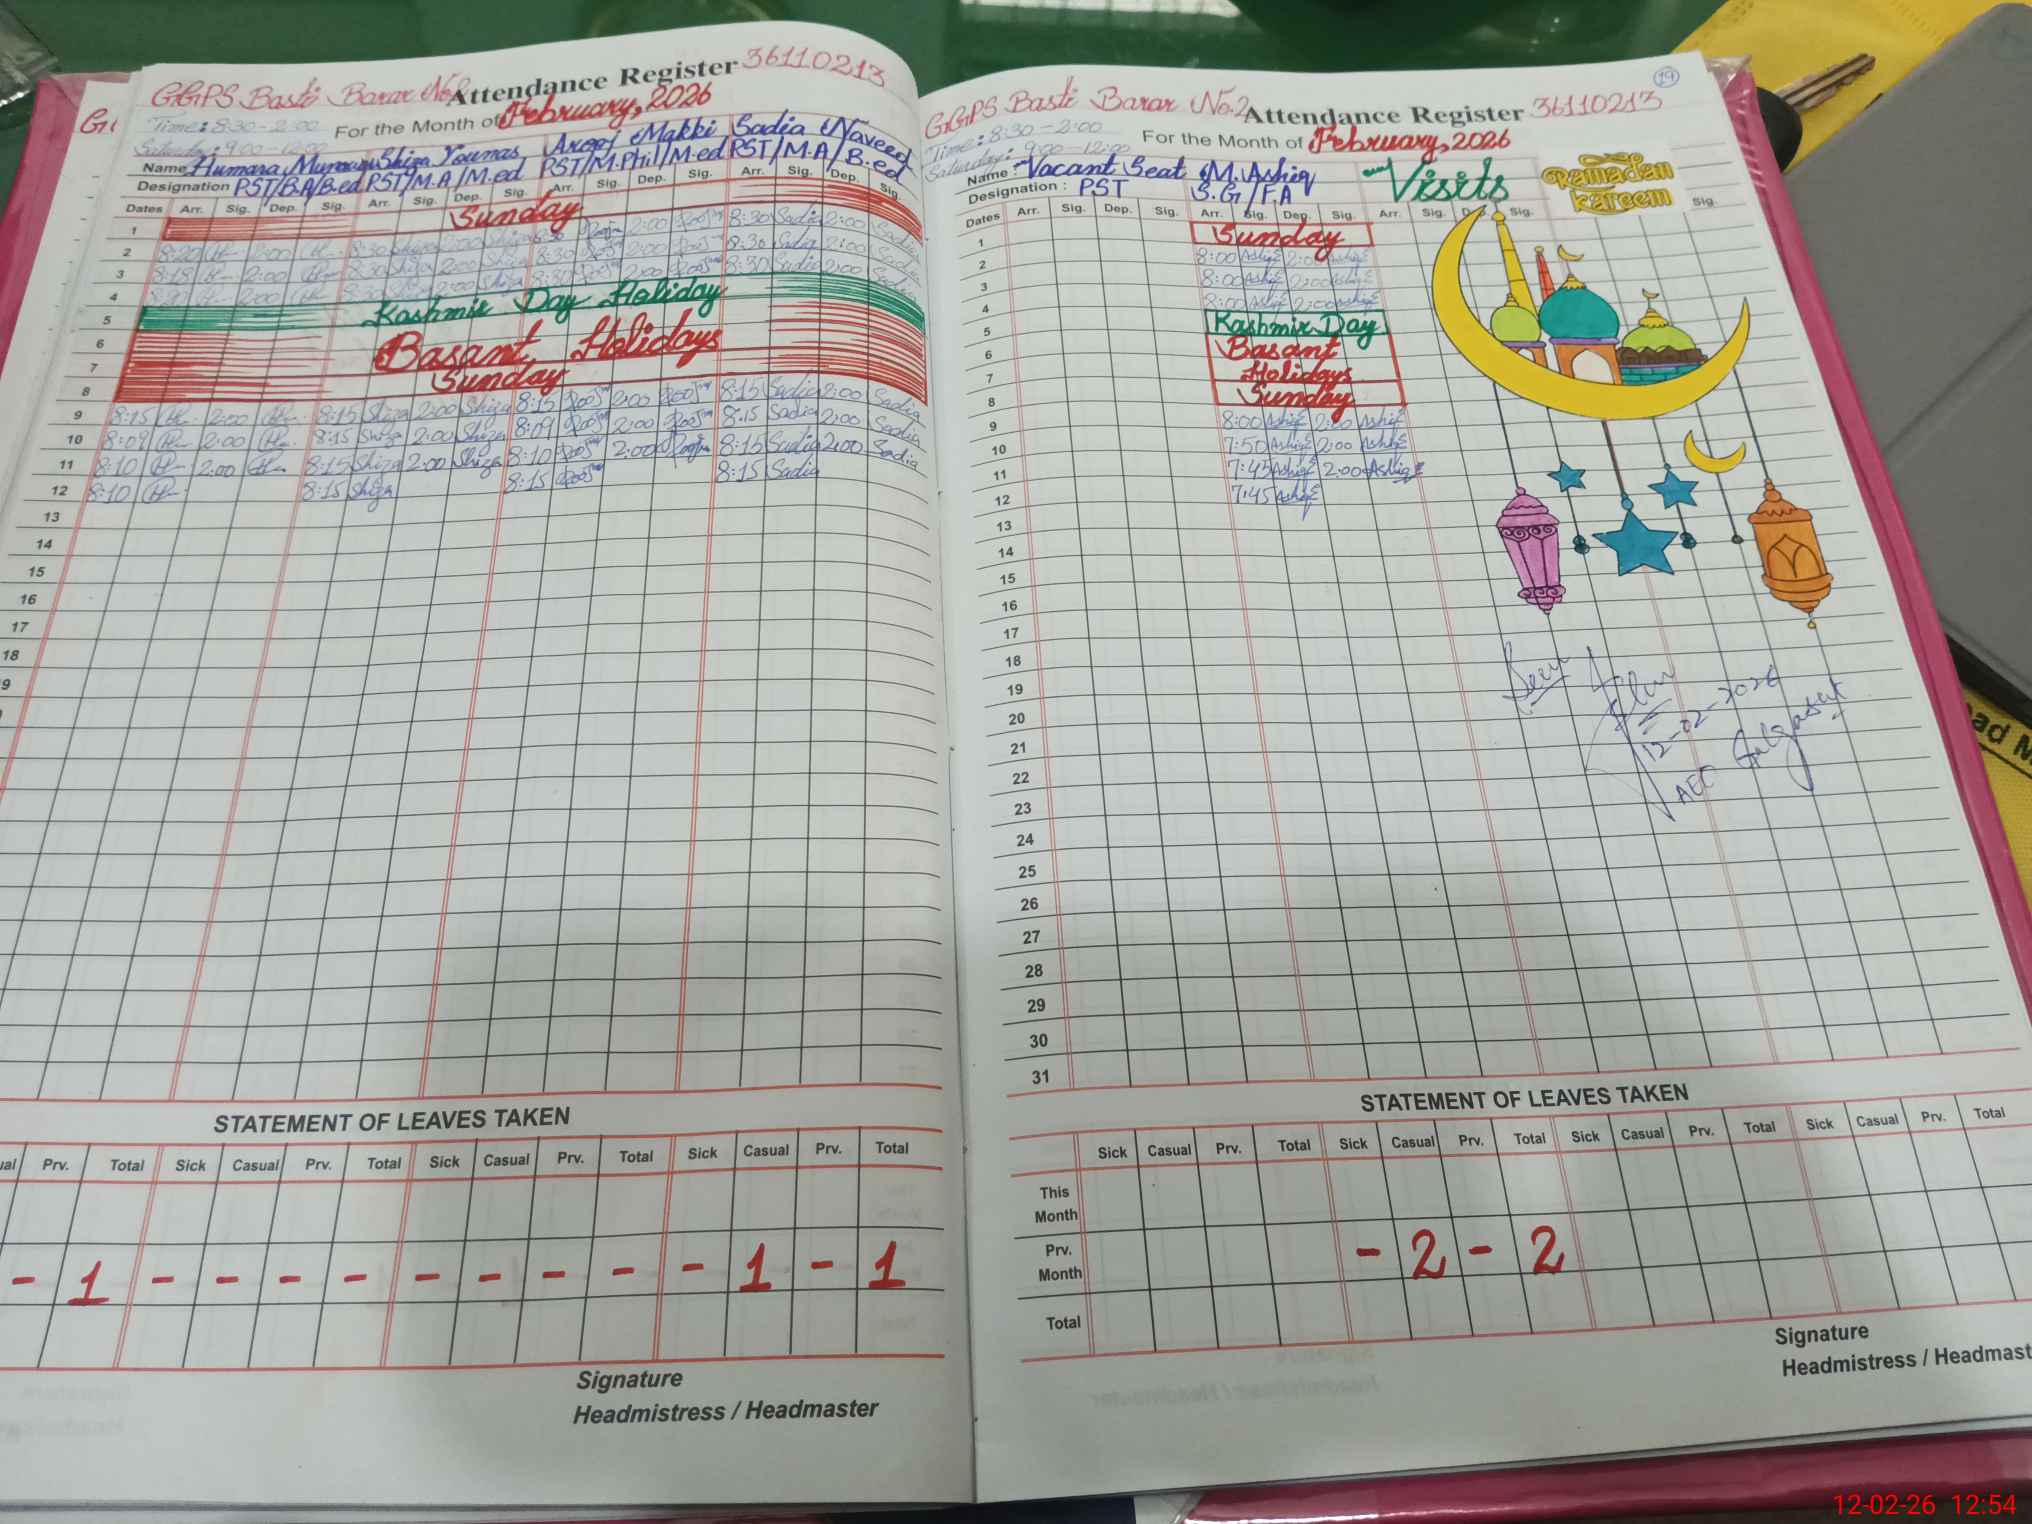 GGPS Basti Barar No.2 Attendance Register 36110213
Time: 8:30 - 2:00 For the Month of February, 2026
Saturday: 9:00 - 12:00
Name: Humara Munawar Shiza Younas Arooj Makki Sadia Naveed
Designation PST/B.A/B.ed PST/M.A/M.ed PST/M.Phil/M.ed PST/M.A/B.ed
Dates Arr. Sig. Dep. Sig. Arr. Sig. Dep. Sig. Arr. Sig. Dep. Sig. Arr. Sig. Dep. Sig.
1 Sunday
2 8:20 2:00 8:30 Shiza 2:00 Shiza 8:30 2:00 8:30 Sadia 2:00 Sadia
3 8:18 2:00 8:30 Shiza 2:00 Shiza 8:30 2:00 8:30 Sadia 2:00 Sadia
4 2:00 8:30 Shiza 2:00 Shiza 8:30 2:00 8:30 Sadia 2:00 Sadia
5 Kashmir Day Holiday
6
7 Basant Holidays
8 Sunday
9 8:15 2:00 8:15 Shiza 2:00 Shiza 8:15 2:00 8:15 Sadia 2:00 Sadia
10 8:09 2:00 8:15 Shiza 2:00 Shiza 8:09 2:00 8:15 Sadia 2:00 Sadia
11 8:10 2:00 8:15 Shiza 2:00 Shiza 8:10 2:00 8:15 Sadia 2:00 Sadia
12 8:10 8:15 Shiza 8:15 8:15 Sadia
13
14
15
16
17
18
9
STATEMENT OF LEAVES TAKEN
Prv. Total Sick Casual Prv. Total Sick Casual Prv. Total Sick Casual Prv. Total
- 1 - - - - - - - - - 1 - 1
Signature
Headmistress / Headmaster
GGPS Basti Barar No.2 Attendance Register 36110213 19
Time: 8:30 - 2:00 For the Month of February, 2026
Saturday: 9:00 - 12:00
Name: Vacant Seat M. Ashiq Visits Ramadan kareem
Designation: PST S.G/F.A
Dates Arr. Sig. Dep. Sig. Arr. Sig. Dep. Sig. Arr. Sig. Sig. Sig.
1 Sunday
2 8:00 Ashiq 2:00 Ashiq
3 8:00 Ashiq 2:00 Ashiq
4 8:00 Ashiq 2:00 Ashiq
5 Kashmir Day
6 Basant
7 Holidays
8 Sunday
9 8:00 Ashiq 2:00 Ashiq
10 7:50 Ashiq 2:00 Ashiq
11 7:45 Ashiq 2:00 Ashiq
12 7:45 Ashiq
13
14
15
16
17
18
19
20
21
22
23
24
25
26
27
28
29
30
31
Seen
12-02-2026
AEO Gulgasht
STATEMENT OF LEAVES TAKEN
Sick Casual Prv. Total Sick Casual Prv. Total Sick Casual Prv. Total Sick Casual Prv. Total
This Month
Prv. Month - 2 - 2
Total
Signature
Headmistress / Headmast
12-02-26 12:54